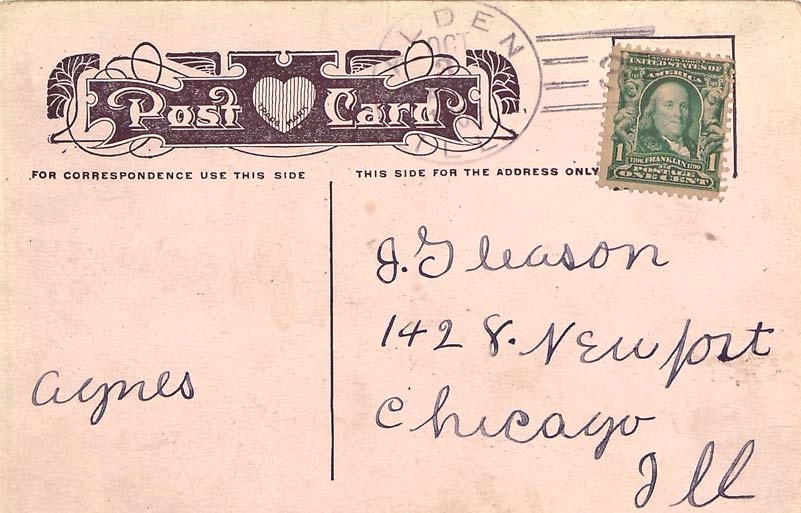 LDEN
OCT
Post Card
TRADE MARK
UNITED STATES OF
AMERICA
1 1706 FRANKLIN 1790 1
POSTAGE
ONE CENT
FOR CORRESPONDENCE USE THIS SIDE
THIS SIDE FOR THE ADDRESS ONLY
J. Gleason
1428. Newport
Agnes
Chicago
Ill